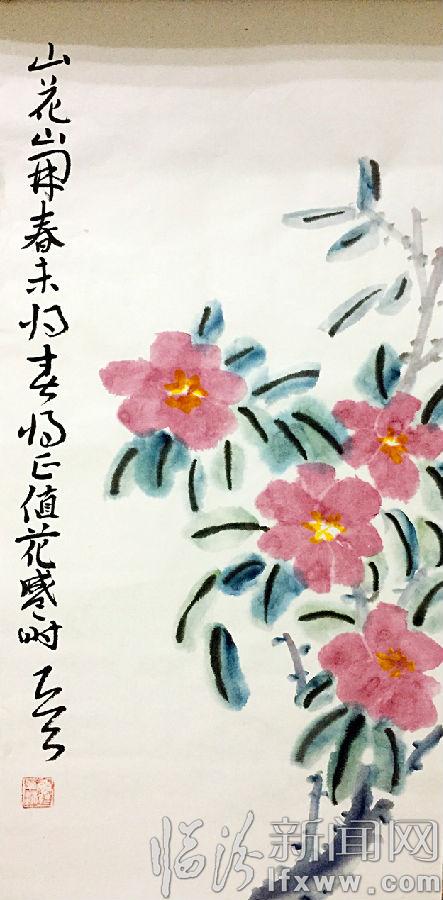 山花山開春未归春归正值花盛时
临汾新闻网
lfxww.com